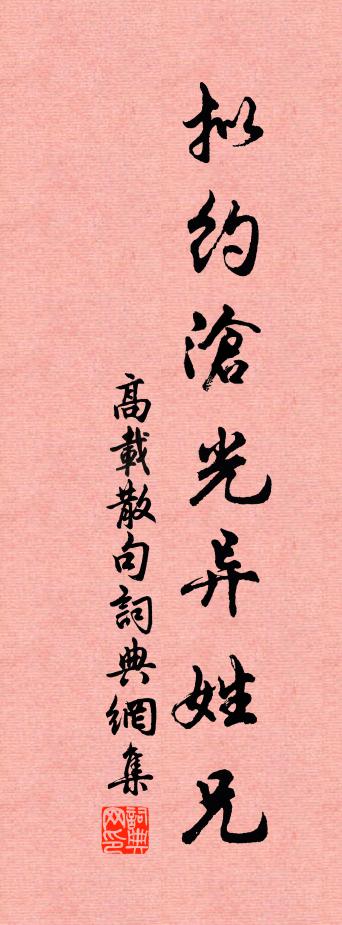 拟约滄光异姓兄
高載散句詞典網集
詞典网印